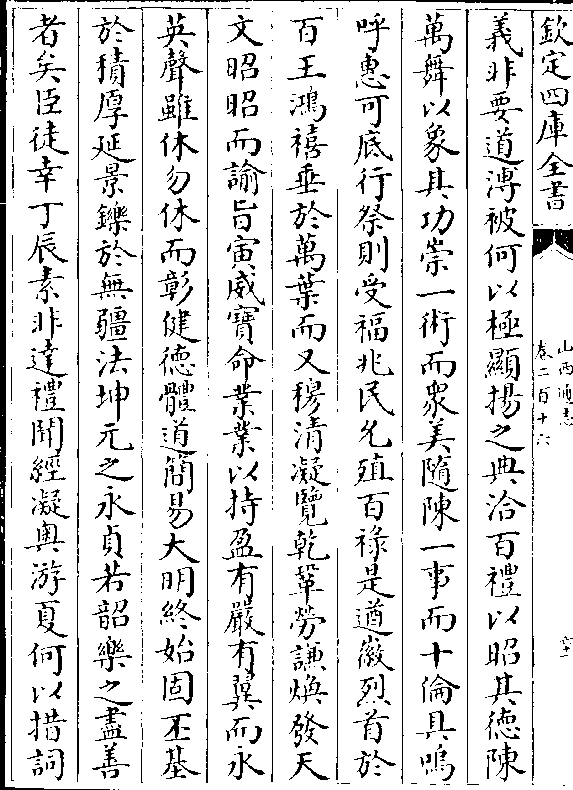 欽定四庫全書
山西通志
卷二百十六
義非要道溥被何以極顯揚之典洽百禮以昭其德陳
萬舞以象其功崇一術而衆美隨陳一事而十倫具鳴
呼惠可底行祭則受福兆民允殖百祿是遒徽烈首於
百王鴻禧垂於萬葉而又穆清凝覽乾鞏勞謙煥發天
文昭昭而諭旨寅威寶命業業以持盈有嚴有翼而永
英聲雖休勿休而彰健德體道簡易大明終始固丕基
於積厚延景鑠於無疆法坤元之永貞若韶樂之盡善
者矣臣徒幸丁辰素非達禮閱經凝奥游夏何以措詞